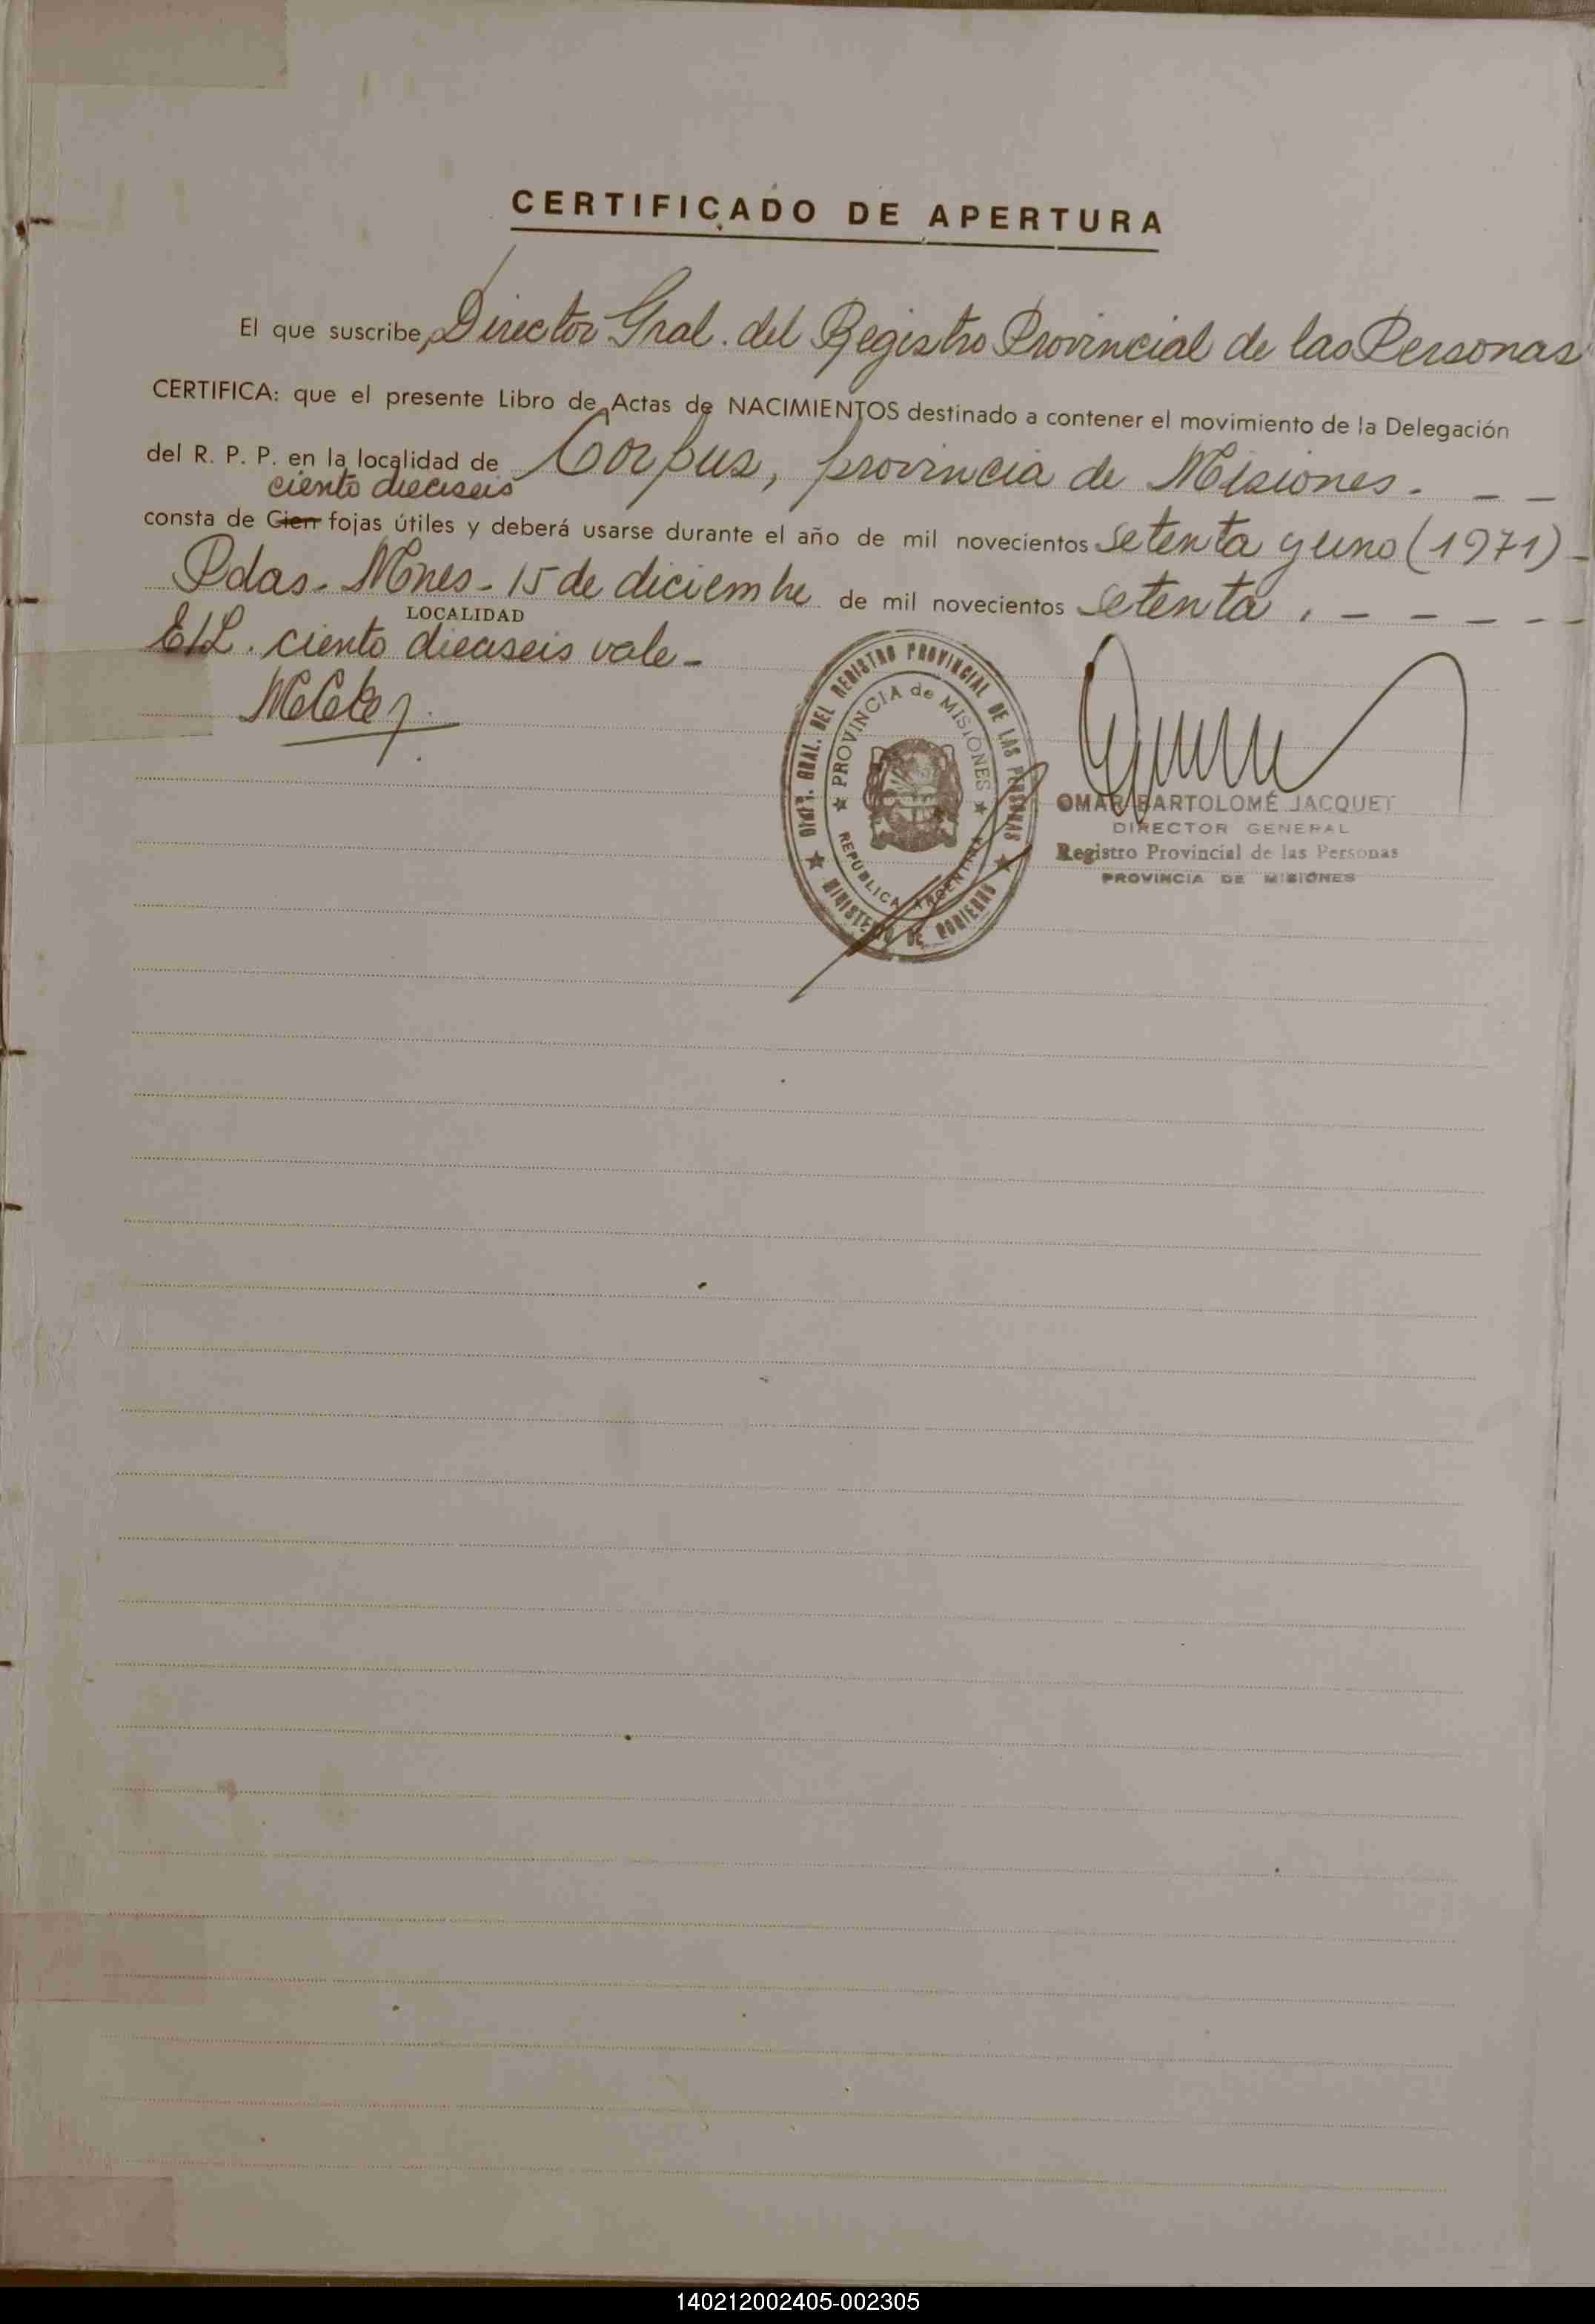 CERTIFICADO DE APERTURA
El que suscribe, Director Gral. del Registro Provincial de las Personas
CERTIFICA: que el presente Libro de Actas de NACIMIENTOS destinado a contener el movimiento de la Delegación
del R. P. P. en la localidad de Corpus, provincia de Misiones. - -
ciento dieciseis
consta de Cien fojas útiles y deberá usarse durante el año de mil novecientos setenta y uno (1971) -
Pdas. Mnes - 15 de diciembre de mil novecientos setenta. - - - - -
LOCALIDAD
E/L. ciento dieciseis vale -
DIREC. GRAL. DEL REGISTRO PROVINCIAL DE LAS PERSONAS
★ PROVINCIA de MISIONES ★
REPUBLICA ARGENTINA
★ MINISTERIO DE GOBIERNO ★
OMAR BARTOLOMÉ JACQUET
DIRECTOR GENERAL
Registro Provincial de las Personas
PROVINCIA DE MISIONES
140212002405-002305